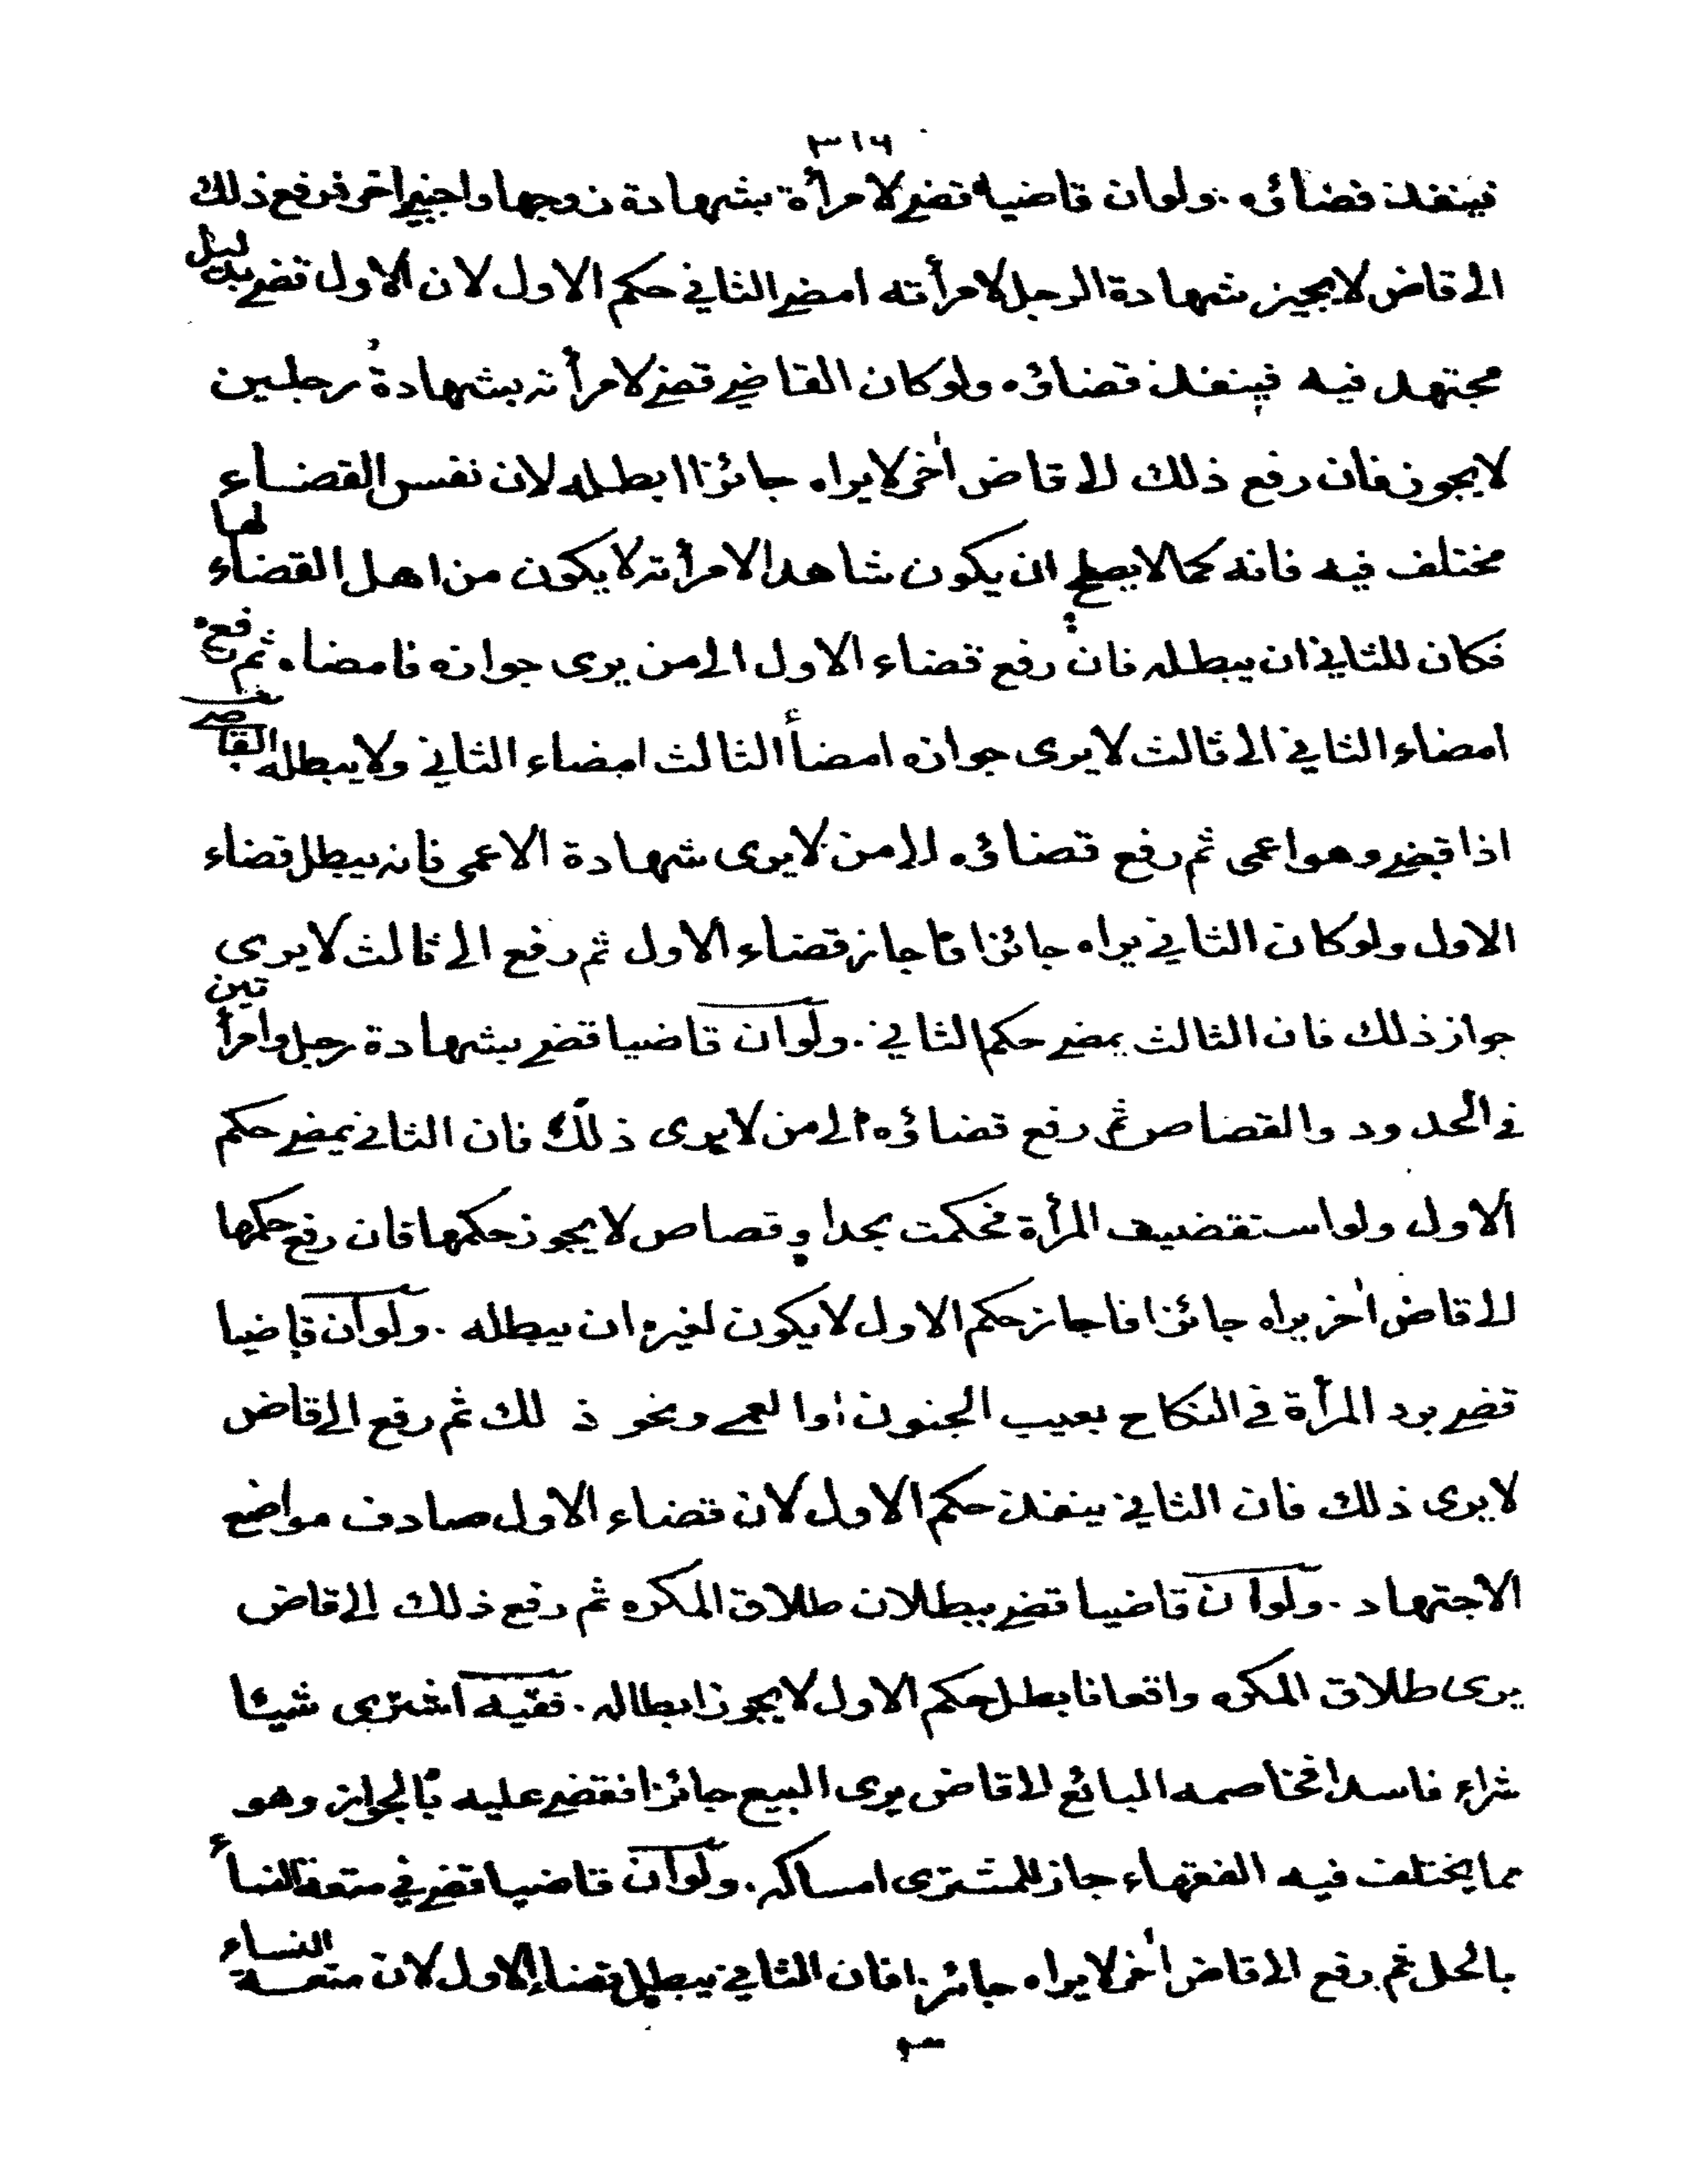 ٣١٦
فينفذ قضاؤه . ولو ان قاضيا قضى لامرأة بشهادة زوجها واجنبي اخر فرفع ذلك
الى قاض لا يجيز شهادة الرجل لامرأته امضى الثاني حكم الاول لان الاول قضى بدليل
مجتهد فيه فينفذ قضاؤه ولو كان القاضي قضى لامرأته بشهادة رجلين
لا يجوز فان رفع ذلك الى قاض اخر لا يراه جائزا ابطله لان نفس القضاء
مختلف فيه فانه كما لا يصلح ان يكون شاهدا لامرأته لا يكون من اهل القضاء لها
فكان للثاني ان يبطله فان رفع قضاء الاول الى من يرى جوازه فامضاه ثم رفع
امضاء الثاني الى ثالث لا يرى جوازه امضأ الثالث امضاء الثاني ولا يبطله القاضي
اذا قضى وهو اعمى ثم رفع قضاؤه الى من لا يرى شهادة الاعمى فانه يبطل قضاء
الاول ولو كان الثاني يراه جائزا فاجاز قضاء الاول ثم رفع الى ثالث لا يرى
جواز ذلك فان الثالث يمضي حكم الثاني . ولو ان قاضيا قضى بشهادة رجل وامرأتين
في الحدود والقصاص ثم رفع قضاؤه الى من لا يرى ذلك فان الثاني يمضي حكم
الاول ولو استقضيت المرأة فحكمت بحد او قصاص لا يجوز حكمها فان رفع حكمها
الى قاض اخر يراه جائزا فاجاز حكم الاول لا يكون لغيره ان يبطله . ولو ان قاضيا
قضى برد المرأة في النكاح بعيب الجنون او العمى ونحو ذلك ثم رفع الى قاض
لا يرى ذلك فان الثاني ينفذ حكم الاول لان قضاء الاول صادف مواضع
الاجتهاد . ولو ان قاضيا قضى ببطلان طلاق المكره ثم رفع ذلك الى قاض
يرى طلاق المكره واقعا فابطل حكم الاول لا يجوز ابطاله . فقيه اشترى شيئا
شراء فاسدا فخاصمه البائع الى قاض يرى البيع جائزا فقضى عليه بالجواز وهو
مما يختلف فيه الفقهاء جاز للمشترى امساكه . ولو ان قاضيا قضى في متعة النسأ
بالحل ثم رفع الى قاض اخر لا يراه جائزا فان الثاني يبطل قضاء الاول لان متعة النساء